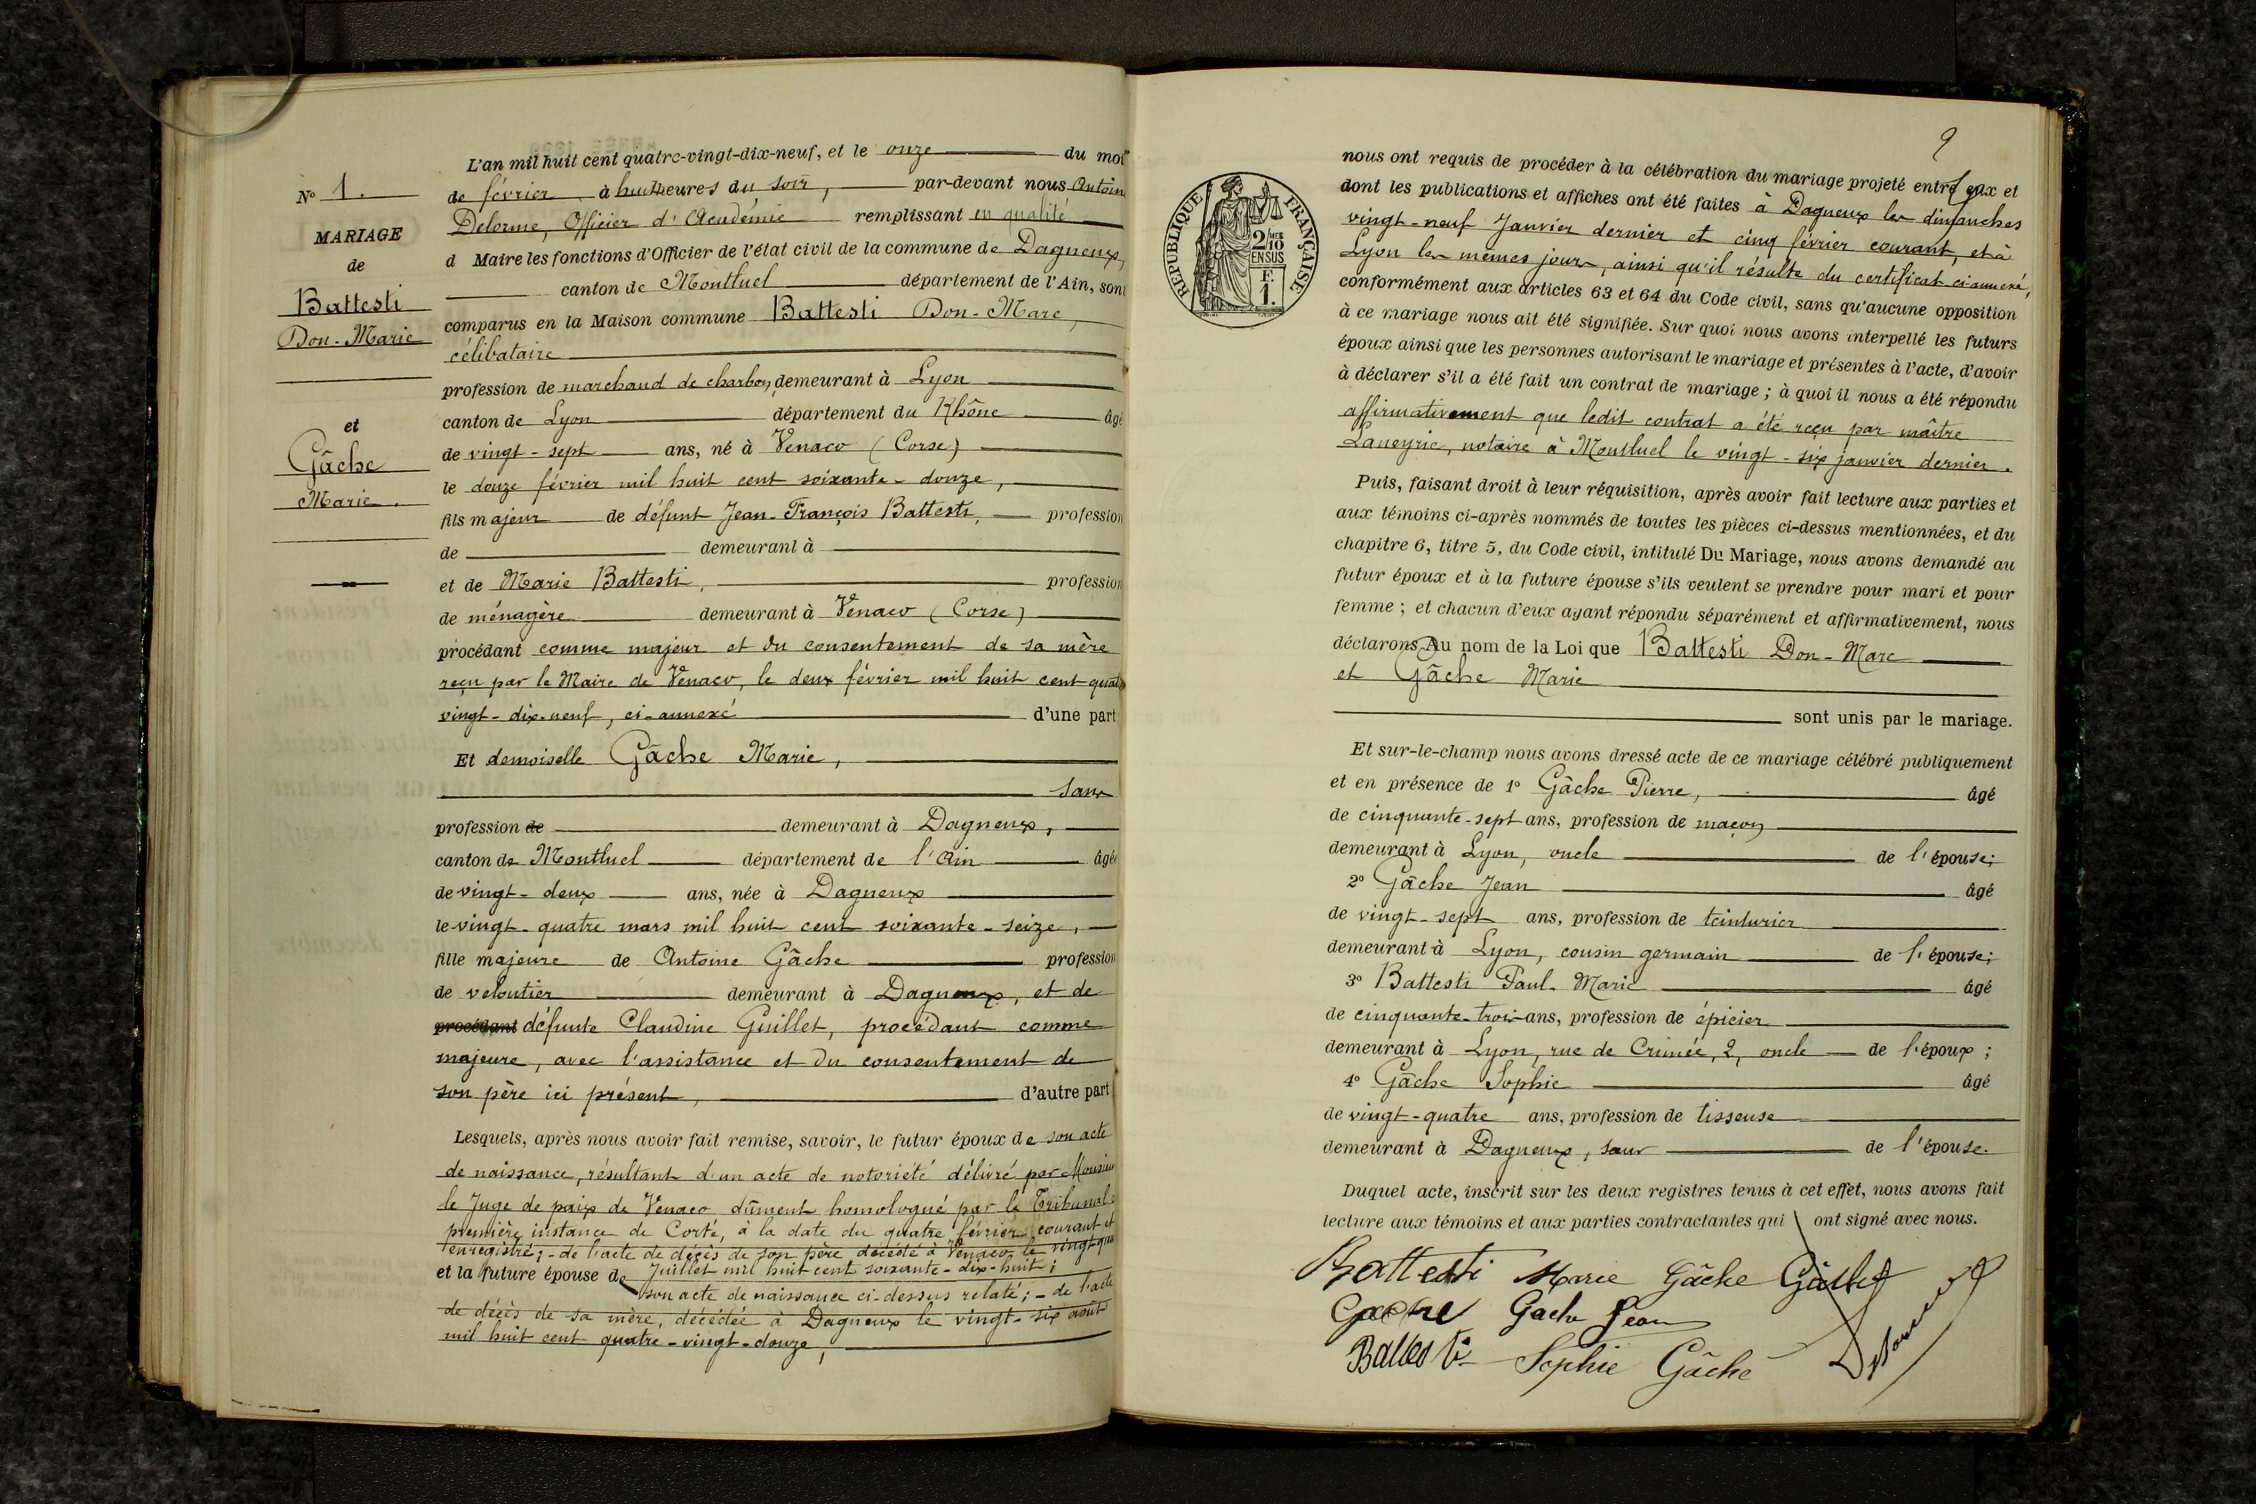 N° 1.
MARIAGE
de
Battesti
Don-Marie
et
Gâche
Marie.
L'an mil huit cent quatre-vingt-dix-neuf, et le onze du moi
de février à huit heures du soir, par-devant nous Antoin
Delorme, Officier d'Académie remplissant en qualité
d Maire les fonctions d'Officier de l'état civil de la commune de Dagneux,
canton de Montluel département de l'Ain, sont
comparus en la Maison commune Battesti Don-Marc,
célibataire
profession de marchand de charbon, demeurant à Lyon
canton de Lyon département du Rhône âgé
de vingt-sept ans, né à Venaco (Corse)
le douze février mil huit cent soixante-douze,
fils majeur de défunt Jean-François Battesti, profession
de demeurant à
et de Marie Battesti, profession
de ménagère demeurant à Venaco (Corse)
procédant comme majeur et du consentement de sa mère
reçu par le Maire de Venaco, le deux février mil huit cent quatre
vingt-dix-neuf, ci-annexé d'une part
Et demoiselle Gâche Marie,
sans
profession de demeurant à Dagneux,
canton de Montluel département de l'Ain âgée
de vingt-deux ans, née à Dagneux
le vingt-quatre mars mil huit cent soixante-seize,
fille majeure de Antoine Gâche profession
de veloutier demeurant à Dagneux, et de
procédant défunte Claudine Guillet, procédant comme
majeure, avec l'assistance et du consentement de
son père ici présent, d'autre part
Lesquels, après nous avoir fait remise, savoir, le futur époux de son acte
de naissance, résultant d'un acte de notoriété délivré par Monsieur
le Juge de paix de Venaco dûment homologué par le Tribunal de
première instance de Corté, à la date du quatre février courant et
enregistré; - de l'acte de décès de son père décédé à Venaco le vingt-qua
et la future épouse de Juillet mil huit cent soixante-dix-huit;
son acte de naissance ci-dessus relaté; - de l'acte
de décès de sa mère, décédée à Dagneux le vingt-six août
mil huit cent quatre-vingt-douze,
RÉPUBLIQUE FRANÇAISE
2/10
EN SUS
F.
1.
nous ont requis de procéder à la célébration du mariage projeté entre eux et
dont les publications et affiches ont été faites à Dagneux les dimanches
vingt-neuf Janvier dernier et cinq février courant, et à
Lyon les mêmes jours, ainsi qu'il résulte du certificat ci-annexé,
conformément aux articles 63 et 64 du Code civil, sans qu'aucune opposition
à ce mariage nous ait été signifiée. Sur quoi nous avons interpellé les futurs
époux ainsi que les personnes autorisant le mariage et présentes à l'acte, d'avoir
à déclarer s'il a été fait un contrat de mariage ; à quoi il nous a été répondu
affirmativement que ledit contrat a été reçu par maître
Laneyrie, notaire à Montluel le vingt-six janvier dernier.
Puis, faisant droit à leur réquisition, après avoir fait lecture aux parties et
aux témoins ci-après nommés de toutes les pièces ci-dessus mentionnées, et du
chapitre 6, titre 5, du Code civil, intitulé Du Mariage, nous avons demandé au
futur époux et à la future épouse s'ils veulent se prendre pour mari et pour
femme ; et chacun d'eux ayant répondu séparément et affirmativement, nous
déclarons Au nom de la Loi que Battesti Don-Marc
et Gâche Marie
sont unis par le mariage.
Et sur-le-champ nous avons dressé acte de ce mariage célébré publiquement
et en présence de 1° Gâche Pierre, âgé
de cinquante-sept ans, profession de maçon
demeurant à Lyon, oncle de l'épouse;
2° Gâche Jean âgé
de vingt-sept ans, profession de teinturier
demeurant à Lyon, cousin germain de l'épouse;
3° Battesti Paul-Marie âgé
de cinquante-trois ans, profession de épicier
demeurant à Lyon, rue de Crimée, 2, oncle de l'époux ;
4° Gâche Sophie âgé
de vingt-quatre ans, profession de tisseuse
demeurant à Dagneux, sœur de l'épouse.
Duquel acte, inscrit sur les deux registres tenus à cet effet, nous avons fait
lecture aux témoins et aux parties contractantes qui ont signé avec nous.
Battesti Marie Gâche Gâche
Gache Gache Jean
Battesti Sophie Gâche Delorme